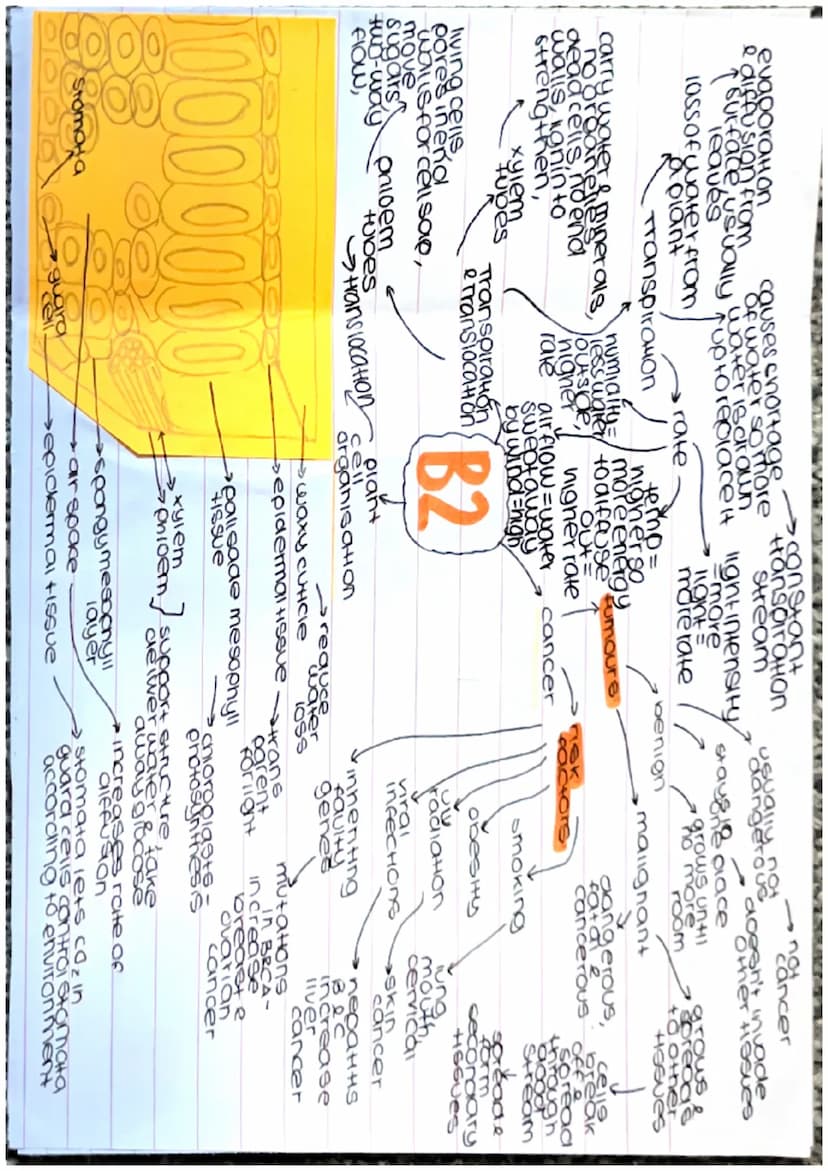 B2
Transpiration
& translocation
transpiration
loss of water from
a plant
evaporation
& diffusion from
surface, usually
leaves
causes shortage
of water so more
water is drawn
up to replace it
constant
transpiration
stream
rate
light intensity
= more
light =
more rate
temp =
higher so
more energy
to diffuse
out =
higher rate
humidity =
less water
outside,
higher
rate
airflow = water
swept away
by wind = high
xylem
tubes
carry water & minerals
no organelles,
dead cells, no end
walls, lignin to
strengthen,
phloem
tubes
living cells
pores in end
walls for cell sap,
sugars
move
two-way
flow
translocation
cancer
tumours
benign
usually not
dangerous
not
cancer
stays in
one place
doesn't invade
other tissues
grows until
no more
room
malignant
dangerous,
fatal &
cancerous
grows &
spreads
to other
tissues
cells
break
off &
spread
through
blood
stream
spread &
form
secondary
tissues
risk
factors
smoking
lung
mouth,
cervical
obesity
uv
radiation
skin
cancer
viral
infections
hepatitis
B & C
increase
liver
cancer
inheriting
faulty
genes
mutations
in BRCA -
increase
breast &
ovarian
cancer
plant
cell
organisation
waxy cuticle
reduce
water
loss
epidermal tissue
trans
parent
for light
palisade mesophyll
tissue
chloroplasts =
photosynthesis
xylem
phloem
support structure & take
deliver water & glucose
away
spongy mesophyll
layer
air space
increases rate of
diffusion
epidermal tissue
stomata lets CO2 in
guard cells control stomata
according to environment
stomata
guard
cell